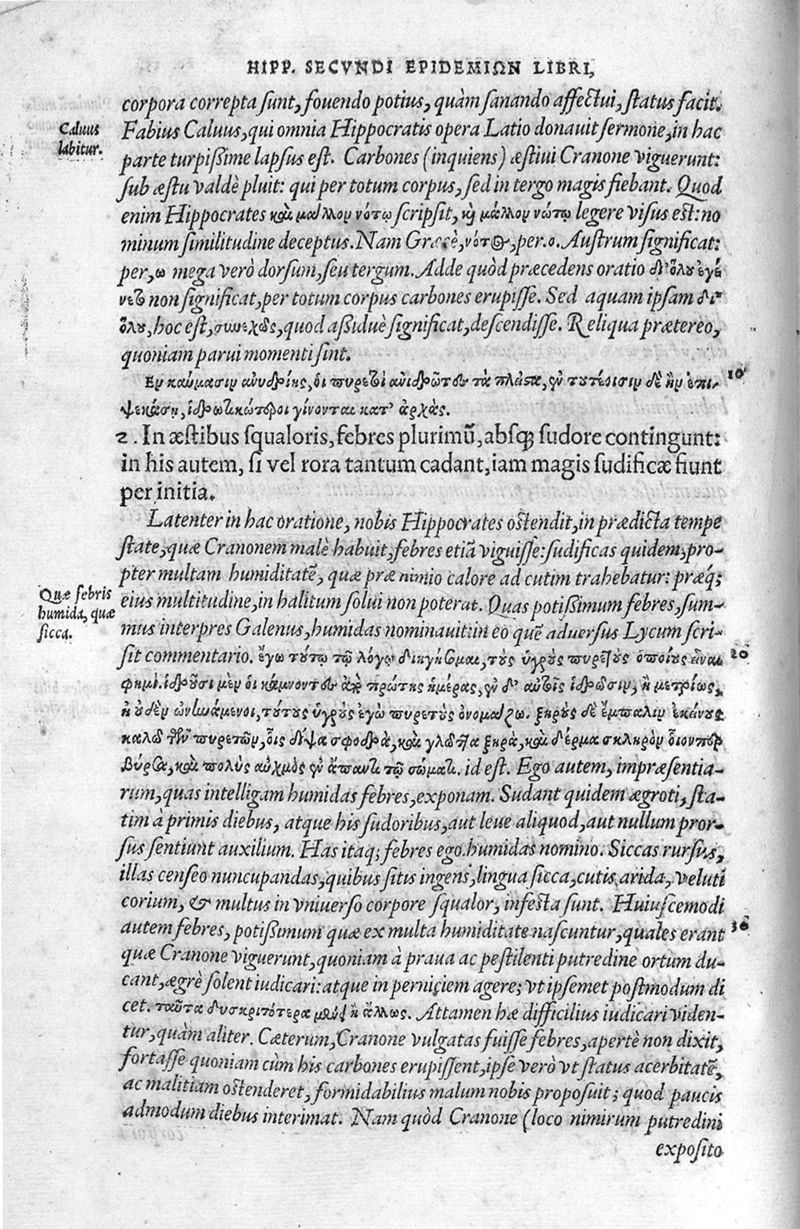 HIPP. SECVNDI EPIDEMIΩN LIBRI,
corpora correpta sunt, fouendo potius, quàm sanando affectui, status facit.
Caluus
labitur.
Fabius Caluus, qui omnia Hippocratis opera Latio donauit sermone, in hac
parte turpissime lapsus est. Carbones (inquiens) æstiui Cranone viguerunt:
sub æstu valdè pluit: qui per totum corpus, sed in tergo magis fiebant. Quod
enim Hippocrates καὶ μᾶλλον νότῳ scripsit, καὶ μάλλον νώτῳ legere visus est: no
minum similitudine deceptus. Nam Græcè, νότος, per .o. Austrum significat:
per, ω mega verò dorsum, seu tergum. Adde quòd præcedens oratio δι' ὅλου ἐγέ
νετο non significat, per totum corpus carbones erupisse. Sed aquam ipsam δι'
ὅλου, hoc est, συνεχῶς, quod assiduè significat, descendisse. Reliqua prætereo,
quoniam parui momenti sint.
Ἐν καύμασιν ἀνυδρίης, οἱ πυρετοὶ ἀνιδρῶτες τὰ πλεῖστα, ἐν τουτέοισιν δὲ ἢν ἐπι-
10
ψεκάσῃ, ἱδρωτικώτεροι γίνονται κατ' ἀρχάς.
2. In æstibus squaloris, febres plurimũ, absq; sudore contingunt:
in his autem, si vel rora tantum cadant, iam magis sudificæ fiunt
per initia.
Latenter in hac oratione, nobis Hippocrates ostendit, in prædicta tempe
state, quæ Cranonem malè habuit, febres etiã viguisse: sudificas quidem, pro-
pter multam humiditatẽ, quæ præ nimio calore ad cutim trahebatur: præq;
Quæ febris
humida, quæ
sicca.
eius multitudine, in halitum solui non poterat. Quas potissimum febres, sum-
mus interpres Galenus, humidas nominauit: in eo quẽ aduersus Lycum scri-
sit commentario. ἐγὼ τούτῳ τῷ λόγῳ διηγήσομαι, τοὺς ὑγροὺς πυρετοὺς ὁποίους εἶναι
20
φημι. ἱδροῦσι μὲν οἱ κάμνοντες ἀπὸ πρώτης ἡμέρας, ἐν δ' αὐτοῖς ἱδρῶσιν, ἢ μετρίως,
ἢ οὐδὲν ὠνινάμενοι, τούτους ὑγροὺς ἐγὼ πυρετοὺς ὀνομάζω. ξηροὺς δὲ ἔμπαλιν ἐκείνους
καλῶ τῶν πυρετῶν, οἷς δίψα σφοδρὰ, καὶ γλῶττα ξηρὰ, καὶ δέρμα σκληρὸν οἷόνπερ
βύρσα, καὶ πολὺς αὐχμὸς ἐν ἅπαντι τῷ σώματι. id est. Ego autem, impræsentia-
rum, quas intelligam humidas febres, exponam. Sudant quidem ægroti, sta-
tim à primis diebus, atque his sudoribus, aut leue aliquod, aut nullum pror-
sus sentiunt auxilium. Has itaq; febres ego humidas nomino. Siccas rursus,
illas censeo nuncupandas, quibus sitis ingens, lingua sicca, cutis arida, veluti
corium, & multus in vniuerso corpore squalor, infesta sunt. Huiuscemodi
autem febres, potissimum quæ ex multa humiditate nascuntur, quales erant
30
quæ Cranone viguerunt, quoniam à praua ac pestilenti putredine ortum du-
cant, ægrè solent iudicari: atque in perniciem agere; vt ipsemet postmodum di
cet. ταῦτα δυσκριτότερα μὲν ἢ ἄλλως. Attamen hæ difficilius iudicari viden-
tur, quàm aliter. Cæterum, Cranone vulgatas fuisse febres, apertè non dixit,
fortasse quoniam cùm his carbones erupissent, ipse verò vt status acerbitatẽ,
ac malitiam ostenderet, formidabilius malum nobis proposuit; quod paucis
admodum diebus interimat. Nam quòd Cranone (loco nimirum putredini
exposito